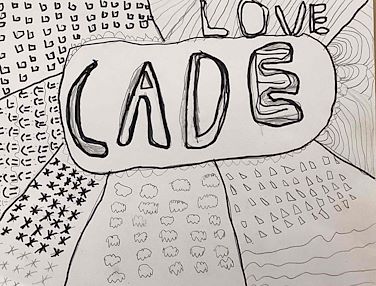 LOVE
CADE